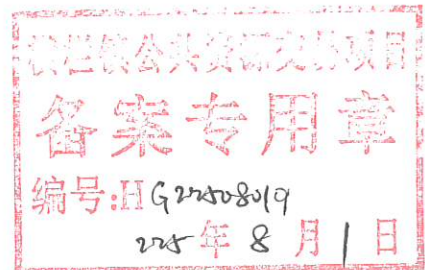 横栏镇公共资源交易项目
备案专用章
编号:HG22508019
225年8月1日